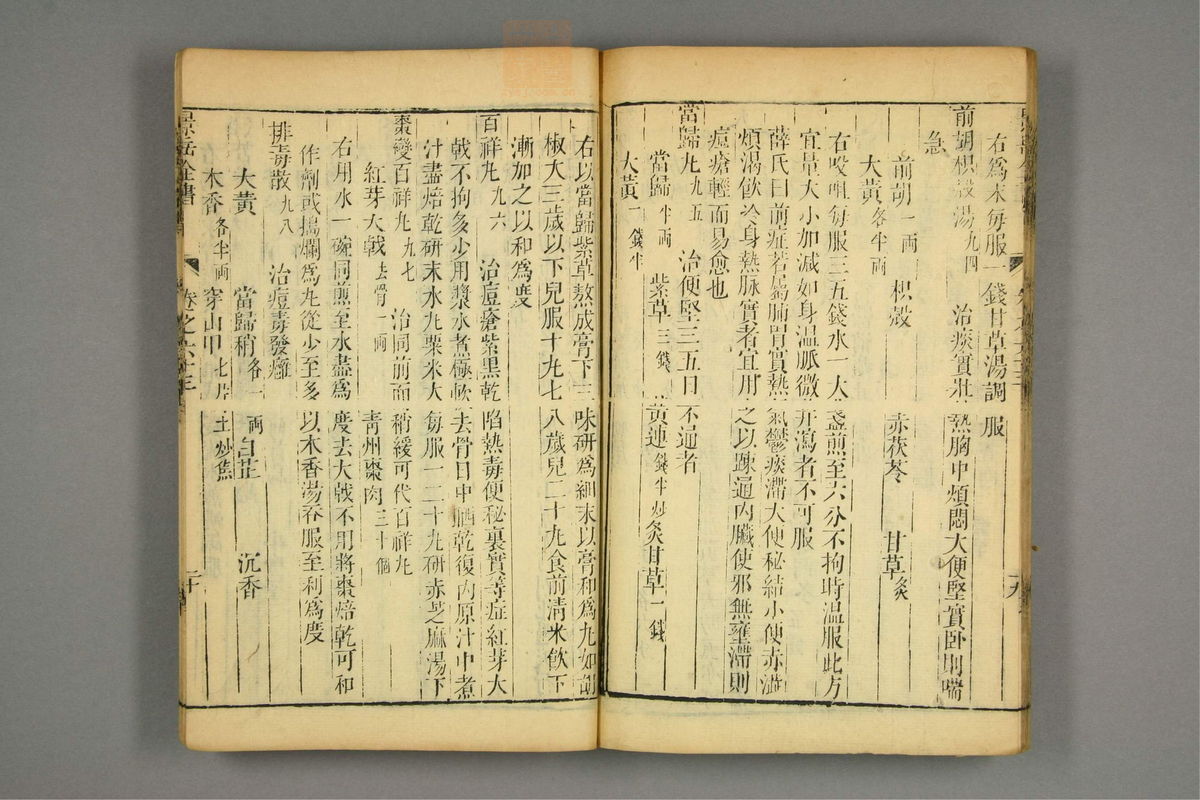 右爲末每服一錢甘草湯調服
前胡枳殼湯九四 治痰實壯熱胸中煩悶大便堅實卧則喘
急
前胡一兩 枳殼 赤茯苓 甘草炙
大黃各半兩
右㕮咀每服三五錢水一大盞煎至六分不拘時温服此方
宜量大小加減如身温脈微并瀉者不可服
薛氏曰前症若屬腸胃實熱氣鬱痰滯大便秘結小便赤澁
煩渴飲冷身熱脉實者宜用之以踈通内臟使邪無壅滯則
痘瘡輕而易愈也
當歸丸九五 治便堅三五日不通者
當歸半兩 紫草三錢 黃連錢半炒 炙甘草一錢
大黃一錢半
右以當歸紫草熬成膏下三味研爲細末以膏和爲丸如胡
椒大三歲以下兒服十丸七八歲兒二十丸食前清米飲下
漸加之以和爲度
百祥丸九六 治痘瘡紫黑乾陷熱毒便秘裏實等症紅芽大
戟不拘多少用漿水煮極軟去骨日中晒乾復内原汁中煮
汁盡焙乾研末水丸粟米大每服一二十丸研赤芝麻湯下
棗變百祥丸九七 治同前而稍緩可代百祥丸
紅芽大戟去骨一兩 青州棗肉三十個
右用水一碗同煎至水盡爲度去大戟不用將棗焙乾可和
作劑或搗爛爲丸從少至多以木香湯吞服至利爲度
排毒散九八 治痘毒發癰
大黃 當歸稍各一兩 白芷 沉香
木香各半兩 穿山甲七片土炒焦
景岳全書 卷之六十三 二十